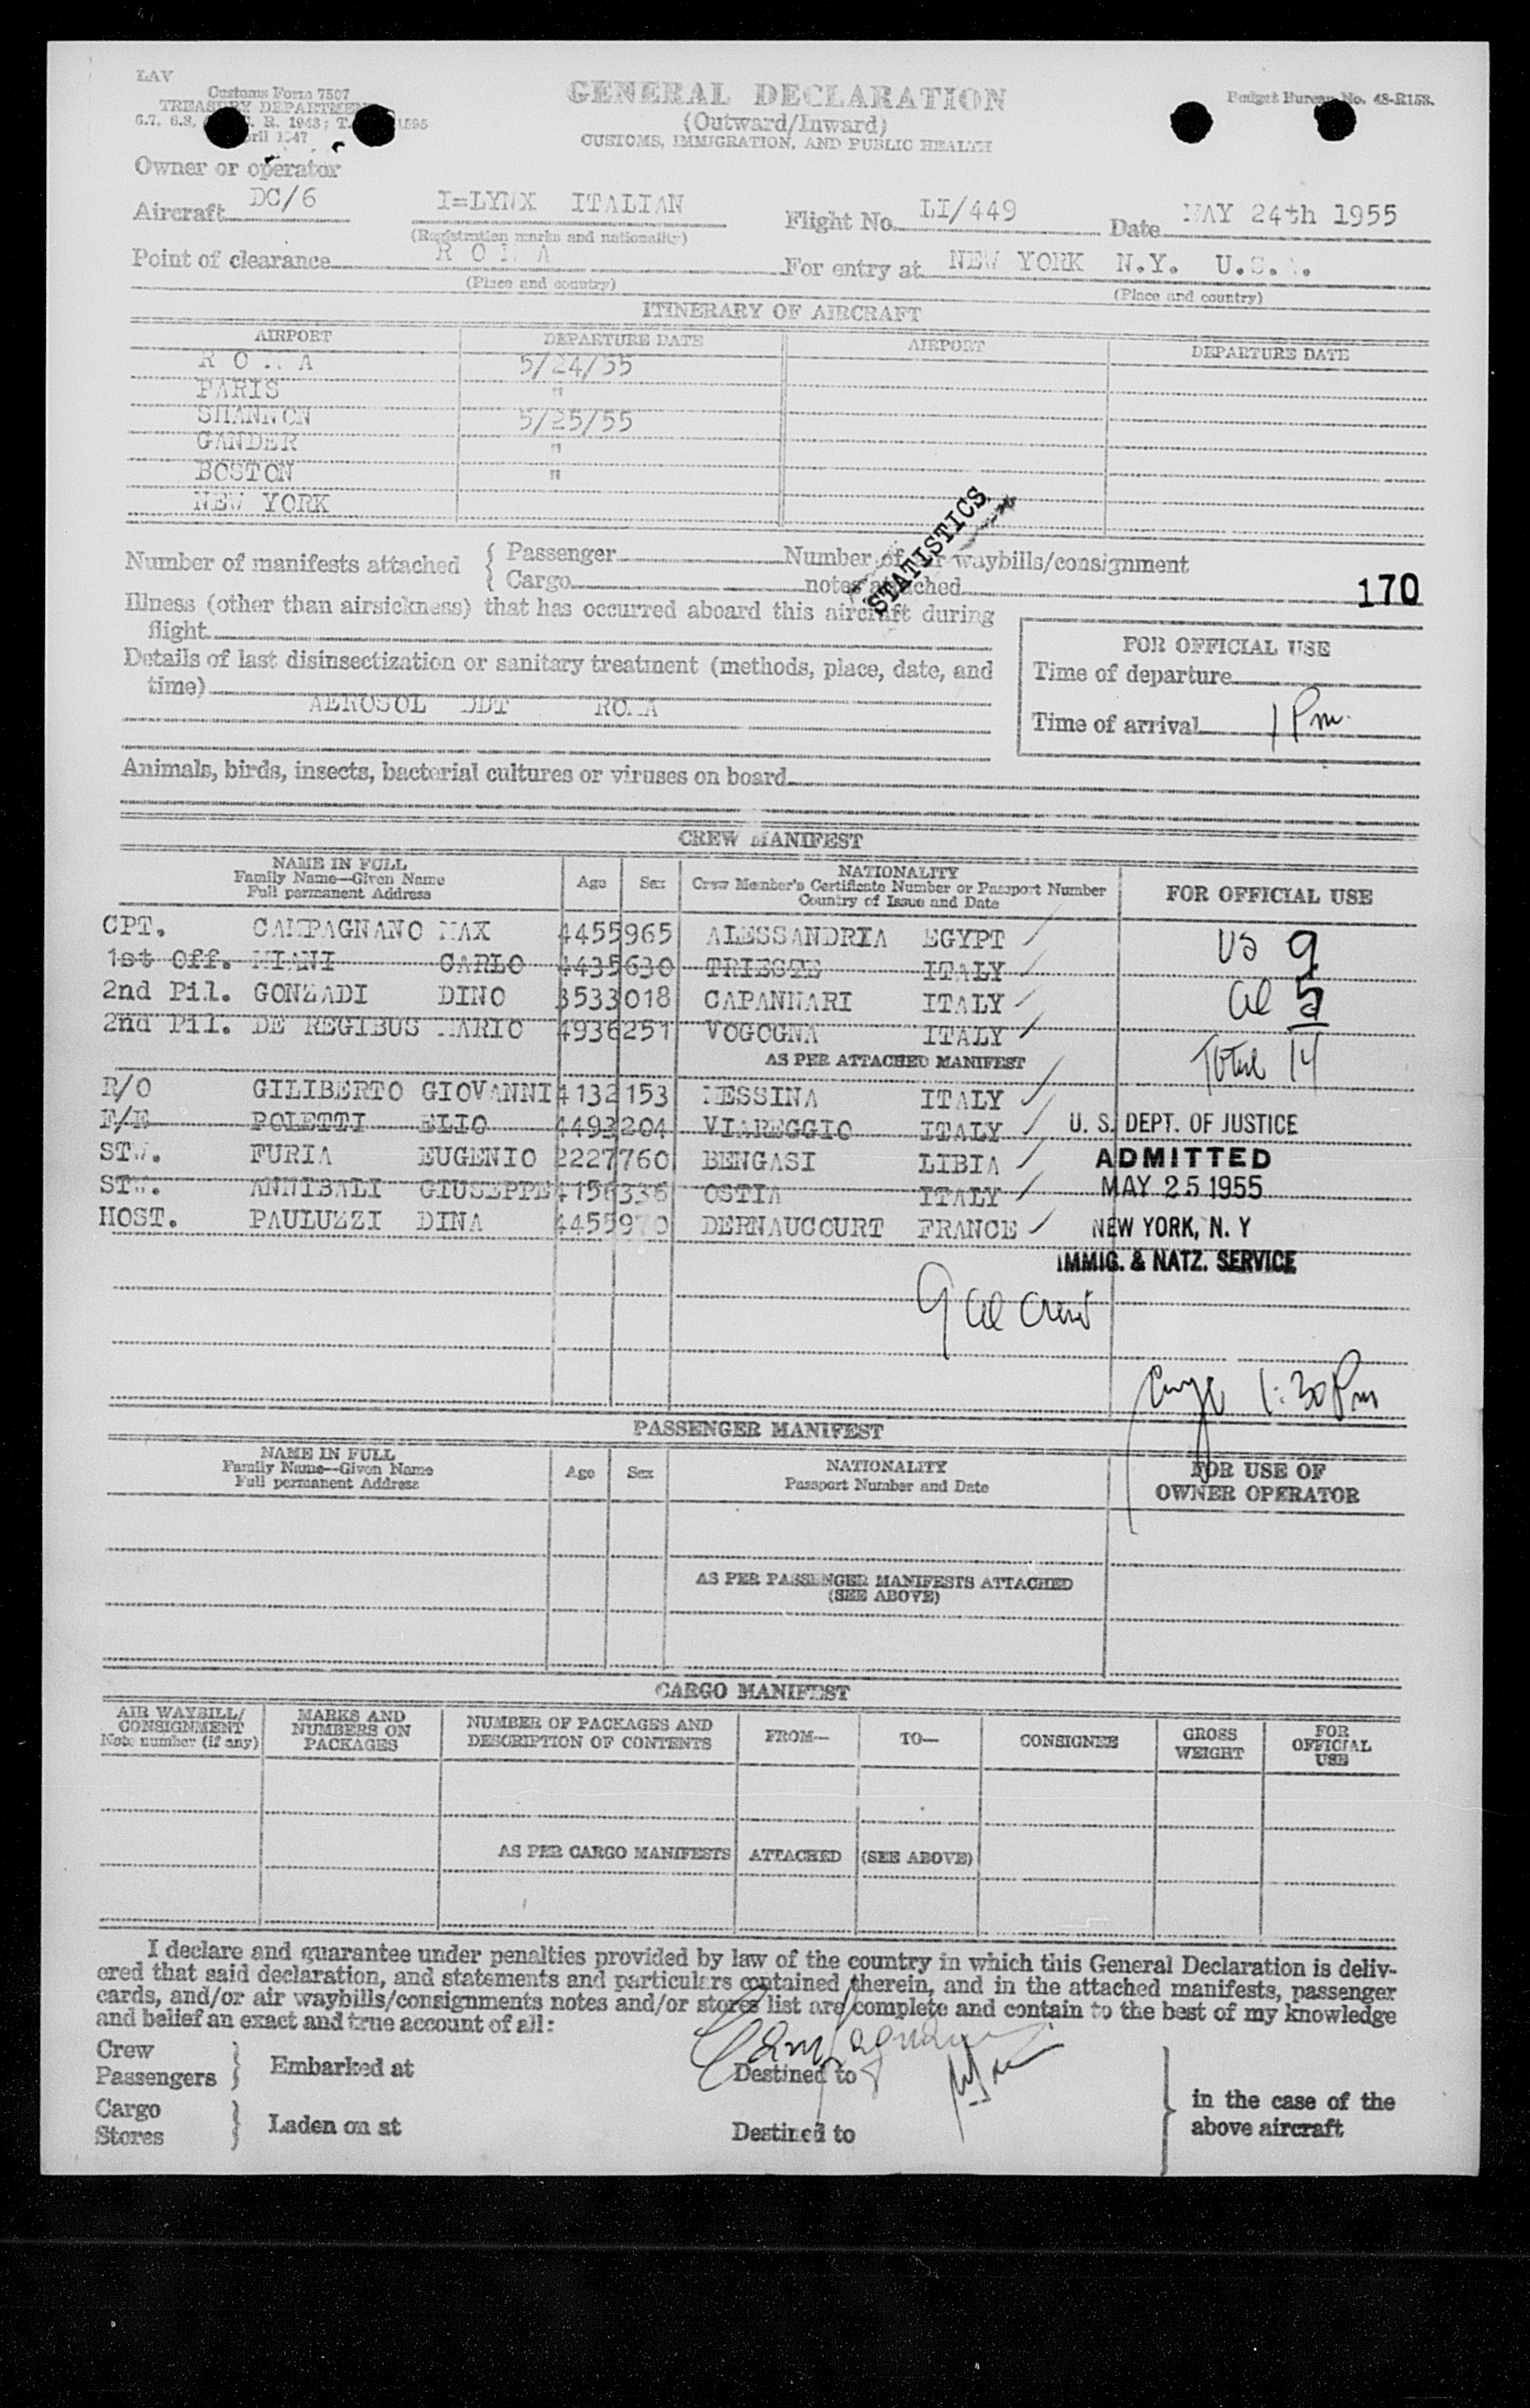 LAV
Customs Form 7507
TREASURY DEPARTMENT
GENERAL DECLARATION
(Outward/Inward)
CUSTOMS, IMMIGRATION, AND PUBLIC HEALTH
Budget Bureau No. 48-R153.
Owner or operator
Aircraft DC/6 I=LYNX ITALIAN Flight No. LI/449 Date MAY 24th 1955
(Registration marks and nationality)
Point of clearance R O M A For entry at NEW YORK N.Y. U.S.A.
(Place and country) (Place and country)
ITINERARY OF AIRCRAFT
AIRPORT DEPARTURE DATE AIRPORT DEPARTURE DATE
R O M A 5/24/55
PARIS "
SHANNON 5/25/55
GANDER "
BOSTON "
NEW YORK
STATISTICS
Number of manifests attached { Passenger Number of air waybills/consignment
{ Cargo notes attached
170
Illness (other than airsickness) that has occurred aboard this aircraft during
flight
Details of last disinsectization or sanitary treatment (methods, place, date, and
time)
AEROSOL DDT ROMA
FOR OFFICIAL USE
Time of departure
Time of arrival 1 Pm.
Animals, birds, insects, bacterial cultures or viruses on board
CREW MANIFEST
NAME IN FULL
Family Name—Given Name
Full permanent Address
Age Sex
NATIONALITY
Crew Member's Certificate Number or Passport Number
Country of Issue and Date
FOR OFFICIAL USE
CPT. CAMPAGNANO MAX 4455965 ALESSANDRIA EGYPT
1st Off. MIANI CARLO 4435630 TRIESTE ITALY
2nd Pil. GONZADI DINO 3533018 CAPANNARI ITALY
2nd Pil. DE REGIBUS MARIO 4936251 VOGOGNA ITALY
AS PER ATTACHED MANIFEST
R/O GILIBERTO GIOVANNI 4132153 MESSINA ITALY
F/E POLETTI ELIO 4493204 VIAREGGIO ITALY
STW. FURIA EUGENIO 2227760 BENGASI LIBIA
STW. ANNIBALI GIUSEPPE 4156336 OSTIA ITALY
HOST. PAULUZZI DINA 4455970 DERNAUCOURT FRANCE
US 9
al 5
Total 14
U. S. DEPT. OF JUSTICE
ADMITTED
MAY 25 1955
NEW YORK, N. Y
IMMIG. & NATZ. SERVICE
9 al Crew
1:30 Pm
PASSENGER MANIFEST
NAME IN FULL
Family Name—Given Name
Full permanent Address
Age Sex
NATIONALITY
Passport Number and Date
FOR USE OF
OWNER OPERATOR
AS PER PASSENGER MANIFESTS ATTACHED
(SEE ABOVE)
CARGO MANIFEST
AIR WAYBILL/
CONSIGNMENT
Note number (if any)
MARKS AND
NUMBERS ON
PACKAGES
NUMBER OF PACKAGES AND
DESCRIPTION OF CONTENTS
FROM—
TO—
CONSIGNEE
GROSS
WEIGHT
FOR
OFFICIAL
USE
AS PER CARGO MANIFESTS ATTACHED (SEE ABOVE)
I declare and guarantee under penalties provided by law of the country in which this General Declaration is deliv-
ered that said declaration, and statements and particulars contained therein, and in the attached manifests, passenger
cards, and/or air waybills/consignments notes and/or stores list are complete and contain to the best of my knowledge
and belief an exact and true account of all:
Crew
Passengers } Embarked at Destined to
Cargo
Stores } Laden on at Destined to
} in the case of the
above aircraft